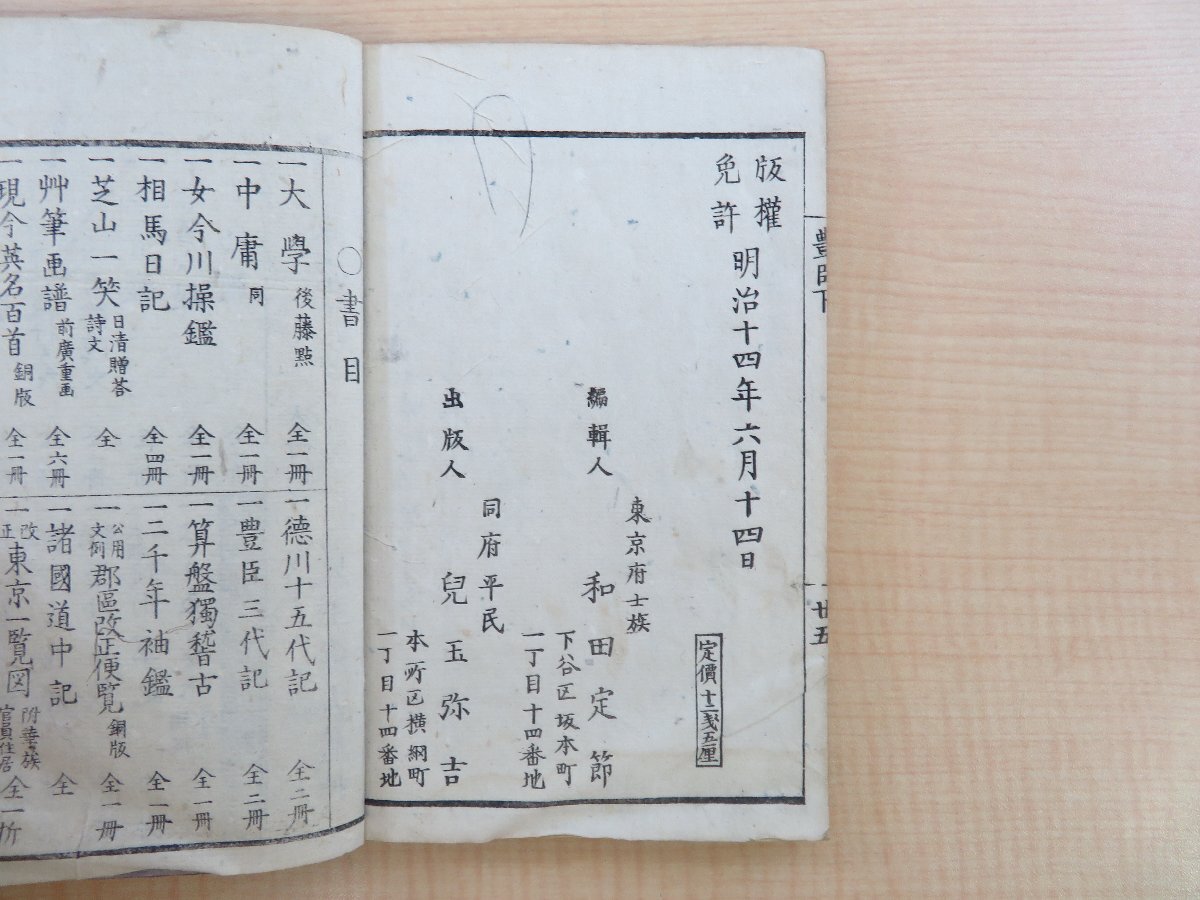 豊臣下
廿五
版權
免許
明治十四年六月十四日
定價十二戔五厘
東京府士族
編輯人
和田定節
下谷区坂本町
一丁目十四番地
同府平民
出版人
兒玉弥吉
本所区横網町
一丁目十四番地
〇書目
一大學 後藤點 全一冊
一中庸 同 全一冊
一女今川操鑑 全一冊
一相馬日記 全四冊
一芝山一笑 日清贈答詩文 全
一艸筆画譜 前廣重画 全六冊
一現今英名百首 銅版 全一冊
一德川十五代記 全二冊
一豊臣三代記 全二冊
一算盤獨稽古 全一冊
一二千年袖鑑 全一冊
一公用文例郡區改正便覧 銅版 全一冊
一諸國道中記 全
一改正東京一覧図 附華族官員住居 全一折